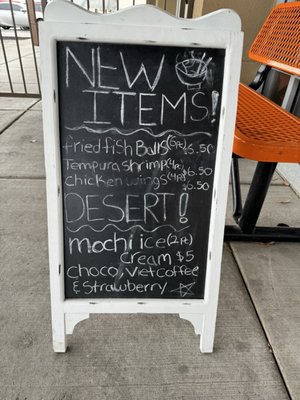 NEW
ITEMS!
fried fish Balls (6pc) $5.50
Tempura shrimp (4pc) $6.50
chicken wings (4pc) $6.50
DESERT!
mochi ice (2pc)
cream $5
choco, Viet coffee
& Strawberry